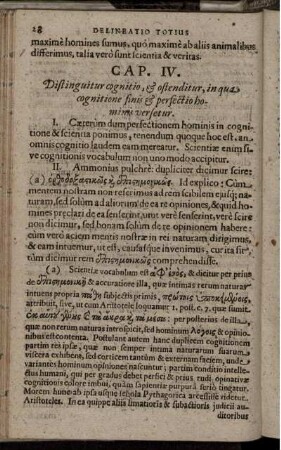 28 DELINEATIO TOTIUS
maximè homines sumus, quò maximè ab aliis animalibus
differimus, talia verò sunt scientia & veritas.
CAP. IV.
Distinguitur cognitio, & ostenditur, in qua
cognitione finis & perfectio ho-
minis versetur.
I. Cæterùm dum perfectionem hominis in cogni-
tione & scientia ponimus, tenendum quoque hoc est: an
omnis cognitio laudem eam mereatur. Scientiæ enim si-
ve cognitionis vocabulum non uno modo accipitur.
II. Ammonius pulchrè: dupliciter dicimur scire:
(a) &
. Id explico: Cùm
mentem nostram non referimus ad rem scibilem ejusq; na-
turam, sed solùm ad aliorum de ea re opiniones, & quid ho-
mines præclari de ea senserint, uti verè senserint, verè scire
non dicimur, sed bonam solùm de re opinionem habere:
cùm verò aciem mentis nostræ in rei naturam dirigimus,
& eam intuemur, ut est, causasque invenimus, cur ita sit,
tum dicimur rem comprehendisse.
(a) Scientiæ vocabulum est & dicitur per prius
de & accuratione illa, quæ intimas rerum naturas
intuens propria subjectis primis,
attribuit, sic Aristoteles loquitur 1. post. c. 7. quæ sunt
, tum . post.
quæ non rerum naturas introspicit, sed hominum & opinio-
nibus est contenta. Postulant autem hanc duplicem cognitionem
partim res ipsæ, quæ non semper intima naturarum suarum
viscera exhibent, sed corticem tantùm & externam faciem, unde
variantes hominum opiniones nascuntur; partim conditio intelle-
ctus humani, qui per gradus debet perfici & prius rudi opinativæ
cognitionis colore imbui, quàm sapientiæ purpura surio tingatur.
Morem hunc ab ipsa usque schola Pythagorica arcessisse videtur
Aristoteles. In ea quippe aliis limatioris & subactioris judicii au-
ditoribus